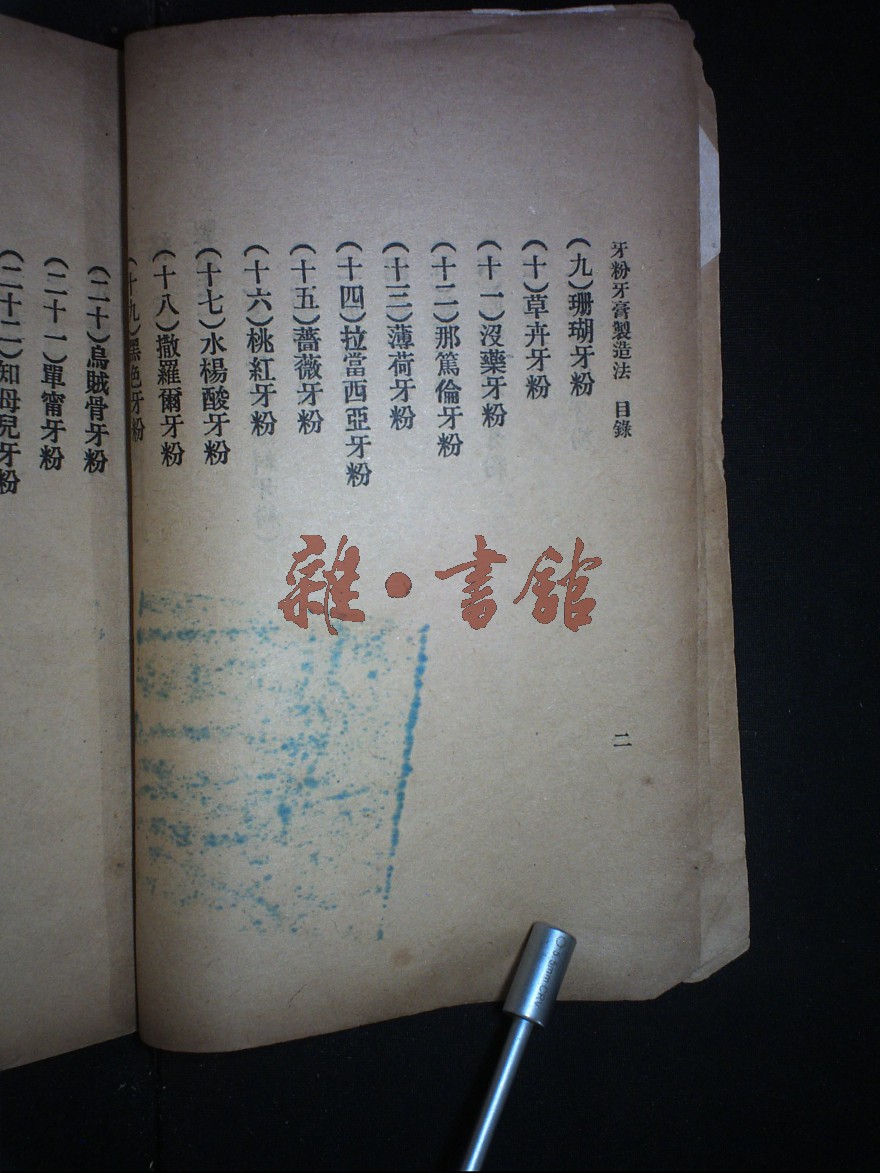 牙粉牙膏製造法　目錄
二
（九）珊瑚牙粉
（十）草卉牙粉
（十一）沒藥牙粉
（十二）那篤倫牙粉
（十三）薄荷牙粉
（十四）拉當西亞牙粉
（十五）薔薇牙粉
（十六）桃紅牙粉
（十七）水楊酸牙粉
（十八）撒羅爾牙粉
（十九）黑色牙粉
（二十）烏賊骨牙粉
（二十一）單甯牙粉
（二十二）知母兒牙粉
雜・書館
5.5mm CRV